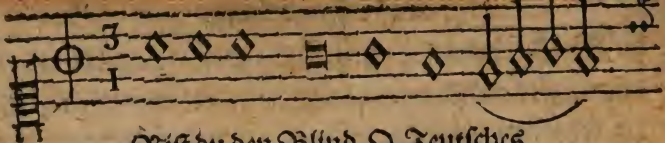 3
1
Biſt du den Blind, O Teutſches